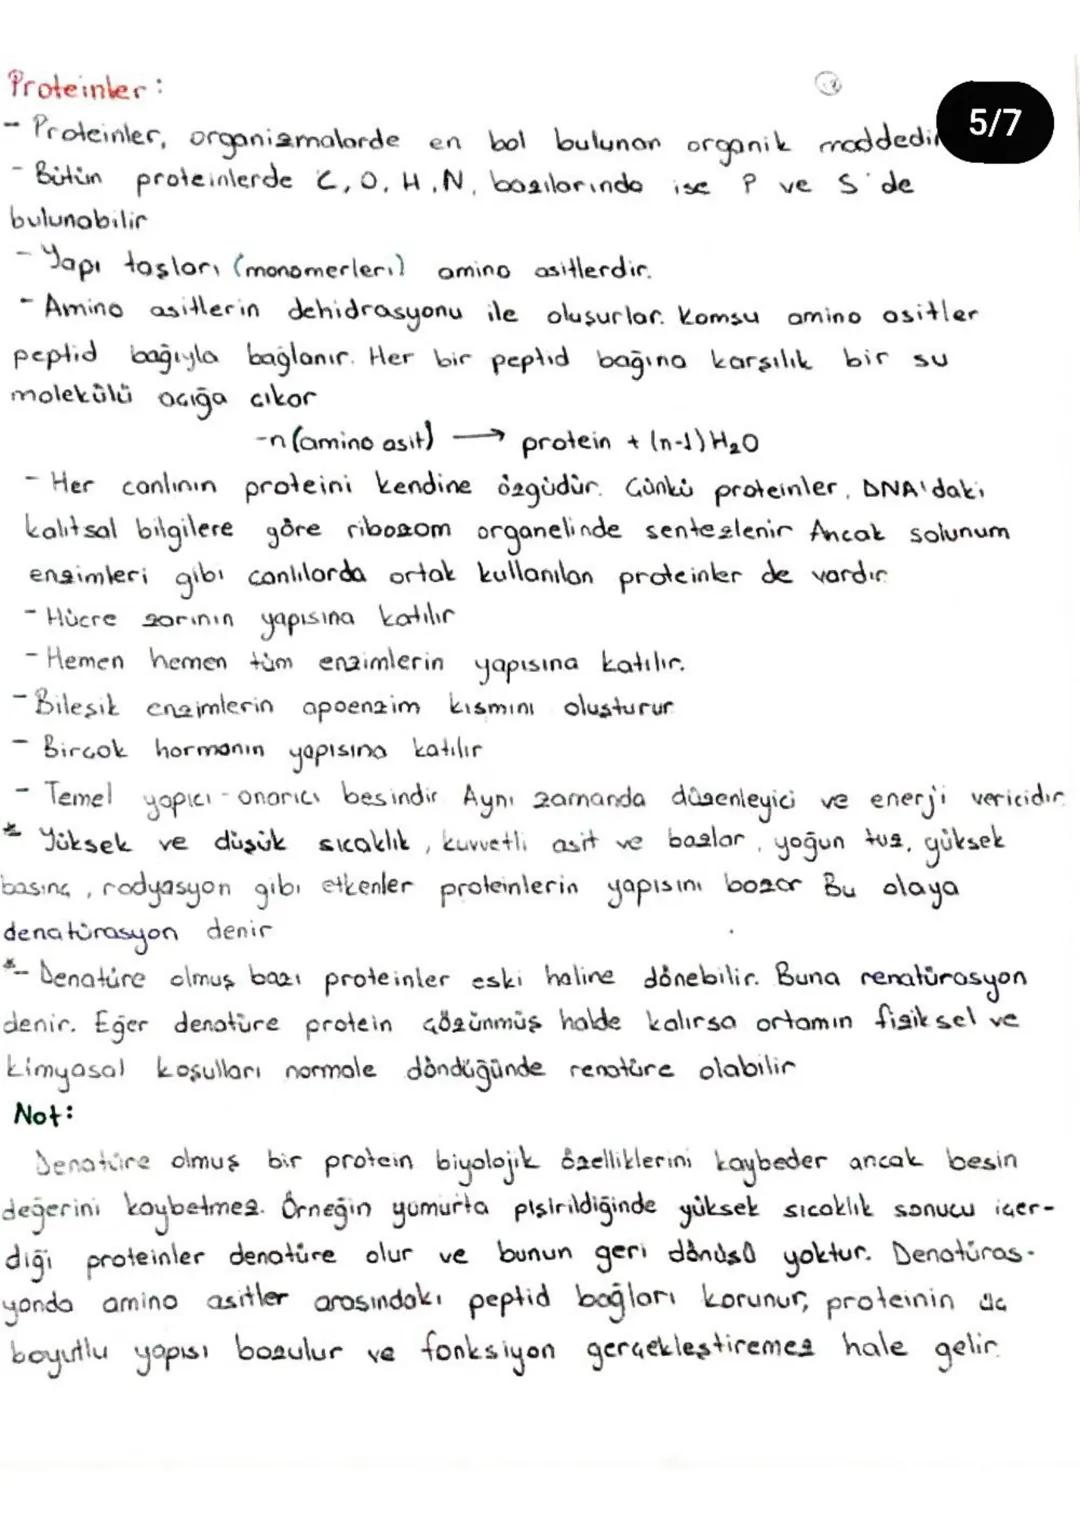 Proteinler:
5/7
- Proteinler, organizmalarda en bol bulunan organik maddedi
- Bütün proteinlerde C, O, H, N, bazılarında ise P ve S'de
bulunabilir
- Yapı taşları (monomerleri) amino asitlerdir.
- Amino asitlerin dehidrasyonu ile oluşurlar. Komsu amino asitler
peptid bağıyla bağlanır. Her bir peptid bağına karşılık bir su
molekülü açığa cıkar
-n(amino asit) → protein + (n-1) H₂O
- Her canlının proteini kendine özgüdür. Çünkü proteinler, DNA'daki
kalıtsal bilgilere göre ribozom organelinde sentezlenir Ancak solunum
enzimleri gibi canlılarda ortak kullanılan proteinler de vardır
- Hücre zarının yapısına katılır
- Hemen hemen tüm enzimlerin yapısına katılır.
- Bileşik enzimlerin apoenzim kısmını oluşturur
- Birçok hormonın yapısına katılır
- Temel yapıcı-onarıcı besindir Aynı zamanda düzenleyici ve enerji vericidir
* Yüksek ve düşük sıcaklık, kuvvetli asit ve bazlar, yoğun tuz, yüksek
basınç, radyasyon gibi etkenler proteinlerin yapısını bozar Bu olaya
denatürasyon denir
*- Denatüre olmuş bazı proteinler eski haline dönebilir. Buna renatürasyon
denir. Eğer denatüre protein çözünmüş halde kalırsa ortamın fiziksel ve
kimyasal koşulları normale döndüğünde renatüre olabilir
Not:
Denatüre olmuş bir protein biyolojik özelliklerini kaybeder ancak besin
değerini kaybetmez. Örneğin yumurta pişirildiğinde yüksek sıcaklık sonucu içer-
diği proteinler denatüre olur ve bunun geri dönüşü yoktur. Denatüras-
yonda amino asitler arasındaki peptid bağları korunur, proteinin üç
boyutlu yapısı bozulur ve fonksiyon gerçekleştiremez hale gelir.